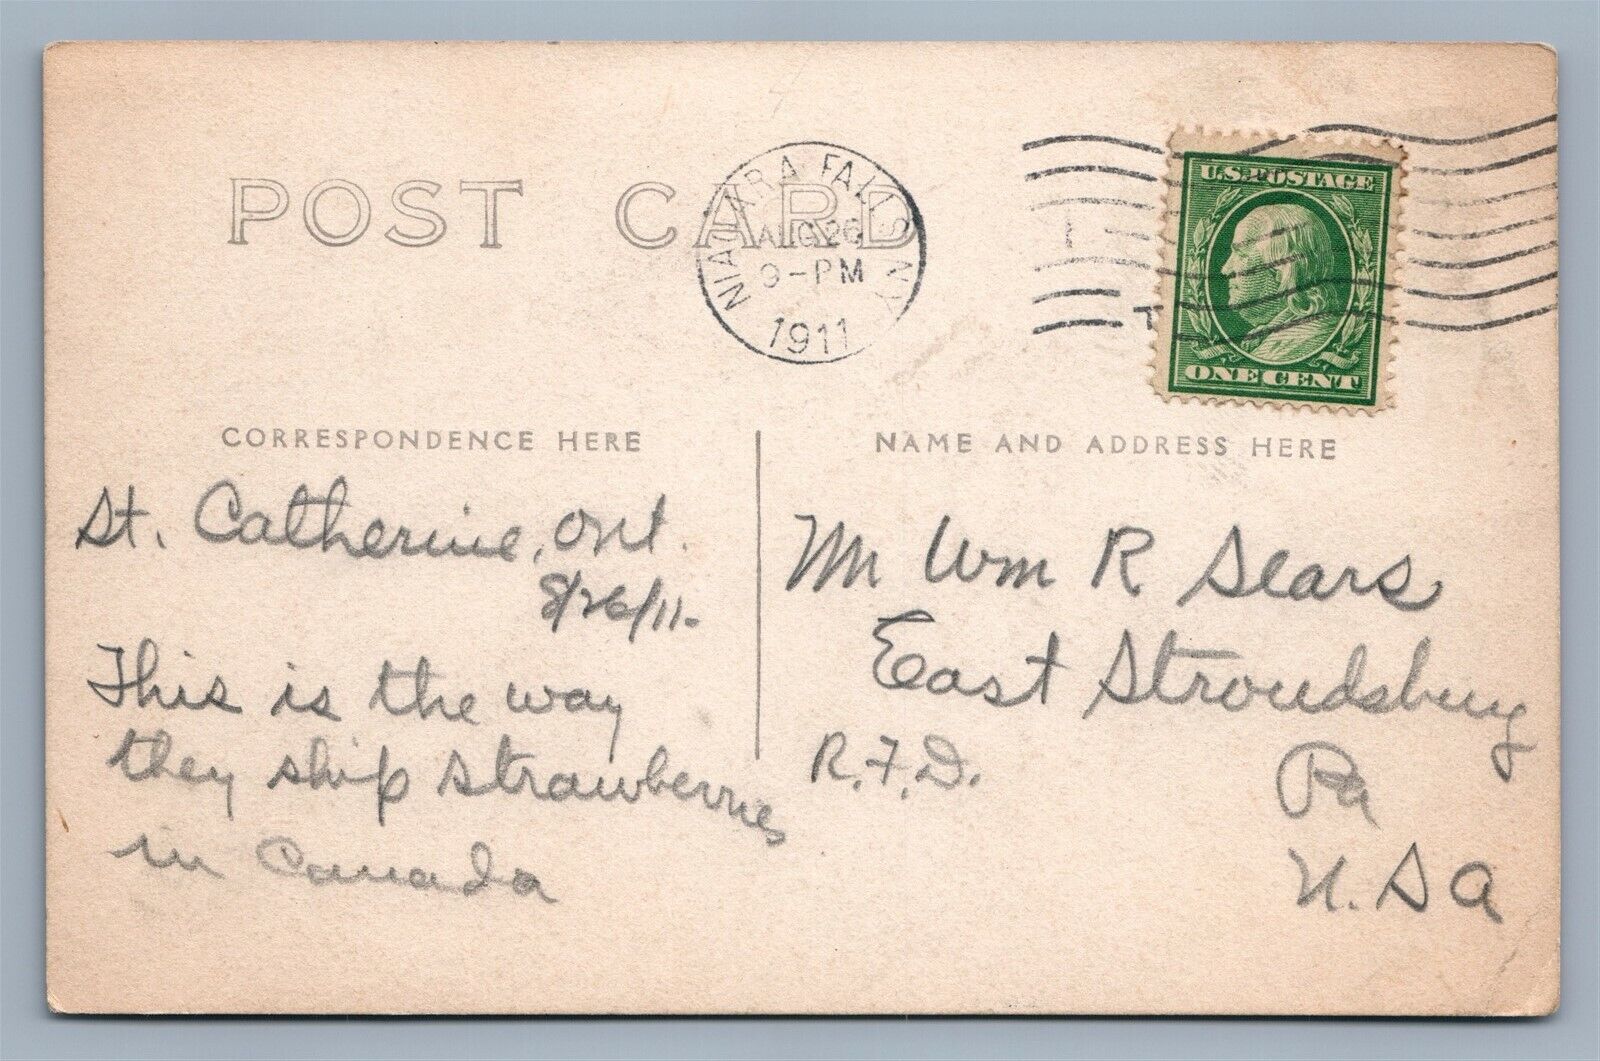 POST CARD
NIAGARA FALLS N.Y.
AUG 26
9-PM
1911
U.S. POSTAGE
ONE CENT
CORRESPONDENCE HERE
St. Catherine, Ont.
8/26/11.
This is the way
they ship strawberries
in Canada
NAME AND ADDRESS HERE
Mr Wm R Sears
East Stroudsburg
R.F.D.
Pa
U.S.A